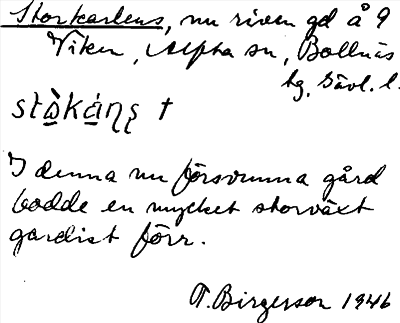 Storkarlens, nu riven gd å 9
Viken, Alpha sn, Bollnäs
tg, Gävl. l.
stɷ̀káɳʂ †
I denna nu försvunna gård
bodde en mycket storväxt
gardist förr.
T. Birgersson 1946